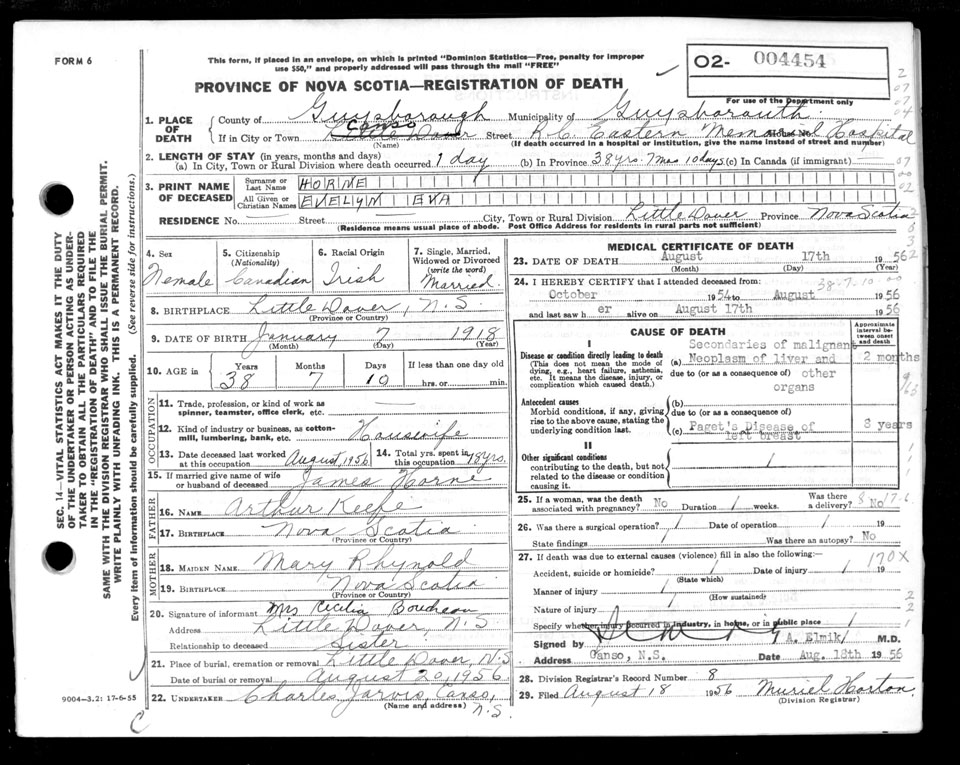 FORM 6
This form, if placed in an envelope, on which is printed "Dominion Statistics—Free, penalty for improper
use $50," and properly addressed will pass through the mail "FREE"
02- 004454
PROVINCE OF NOVA SCOTIA—REGISTRATION OF DEATH
For use of the Department only
1. PLACE OF DEATH
County of Guysborough Municipality of Guysborough
If in City or Town Canso Little Dover Street R.C. Eastern Memorial Hospital
(Name) (If death occurred in a hospital or institution, give the name instead of street and number)
2. LENGTH OF STAY (in years, months and days)
(a) In City, Town or Rural Division where death occurred 1 day (b) In Province 38 yrs. 7 mos 10 days (c) In Canada (if immigrant)
3. PRINT NAME OF DECEASED
Surname or Last Name HORNE
All Given or Christian Names EVELYN EVA
RESIDENCE No. — Street — City, Town or Rural Division Little Dover Province Nova Scotia
(Residence means usual place of abode. Post Office Address for residents in rural parts not sufficient)
4. Sex Female
5. Citizenship (Nationality) Canadian
6. Racial Origin Irish
7. Single, Married, Widowed or Divorced (write the word) Married
8. BIRTHPLACE Little Dover, N.S.
(Province or Country)
9. DATE OF BIRTH January 7 1918
(Month) (Day) (Year)
10. AGE in Years 38 Months 7 Days 10 If less than one day old hrs. or min.
OCCUPATION
11. Trade, profession, or kind of work as spinner, teamster, office clerk, etc. —
12. Kind of industry or business, as cotton-mill, lumbering, bank, etc. Housewife
13. Date deceased last worked at this occupation August, 1956
14. Total yrs. spent in this occupation 18 yrs.
15. If married give name of wife or husband of deceased James Horne
FATHER
16. NAME Arthur Keefe
17. BIRTHPLACE Nova Scotia
(Province or Country)
MOTHER
18. MAIDEN NAME Mary Rhynold
19. BIRTHPLACE Nova Scotia
(Province or Country)
20. Signature of informant Mrs Cecilia Boudreau
Address Little Dover, N.S
Relationship to deceased Sister
21. Place of burial, cremation or removal Little Dover, N.S
Date of burial or removal August 20, 1956
22. UNDERTAKER Charles Jarvis, Canso, N.S.
(Name and address)
MEDICAL CERTIFICATE OF DEATH
23. DATE OF DEATH August 17th 1956
(Month) (Day) (Year)
24. I HEREBY CERTIFY that I attended deceased from
38-7-10
October 1954 to August 1956
and last saw h er alive on August 17th 1956
CAUSE OF DEATH
Approximate interval between onset and death
I
Disease or condition directly leading to death
(This does not mean the mode of dying, e.g., heart failure, asthenia, etc. It means the disease, injury, or complication which caused death.)
Secondaries of malignant
(a) Neoplasm of liver and 2 months
due to (or as a consequence of) other
organs
Antecedent causes
Morbid conditions, if any, giving rise to the above cause, stating the underlying condition last.
(b)
due to (or as a consequence of)
(c) Paget's Disease of left breast 3 years
II
Other significant conditions
contributing to the death, but not related to the disease or condition causing it.
/
25. If a woman, was the death associated with pregnancy? No Duration / weeks. Was there a delivery? No
26. Was there a surgical operation? / Date of operation / 19
State findings / Was there an autopsy? No
27. If death was due to external causes (violence) fill in also the following:—
170X
Accident, suicide or homicide? / Date of injury / 19
(State which)
Manner of injury /
(How sustained)
Nature of injury /
Specify whether injury occurred in industry, in home, or in public place /
Signed by A. Elmik M.D.
Address Canso, N.S. Date Aug. 18th 1956
28. Division Registrar's Record Number 8
29. Filed August 18 1956 Muriel Horton
(Division Registrar)
SEC. 14—VITAL STATISTICS ACT MAKES IT THE DUTY
OF THE UNDERTAKER OR PERSON ACTING AS UNDER-
TAKER TO OBTAIN ALL THE PARTICULARS REQUIRED
IN THE "REGISTRATION OF DEATH" AND TO FILE THE
SAME WITH THE DIVISION REGISTRAR WHO SHALL ISSUE THE BURIAL PERMIT.
WRITE PLAINLY WITH UNFADING INK. THIS IS A PERMANENT RECORD.
Every item of information should be carefully supplied. (See reverse side for instructions.)
9004-3.2: 17-6-55